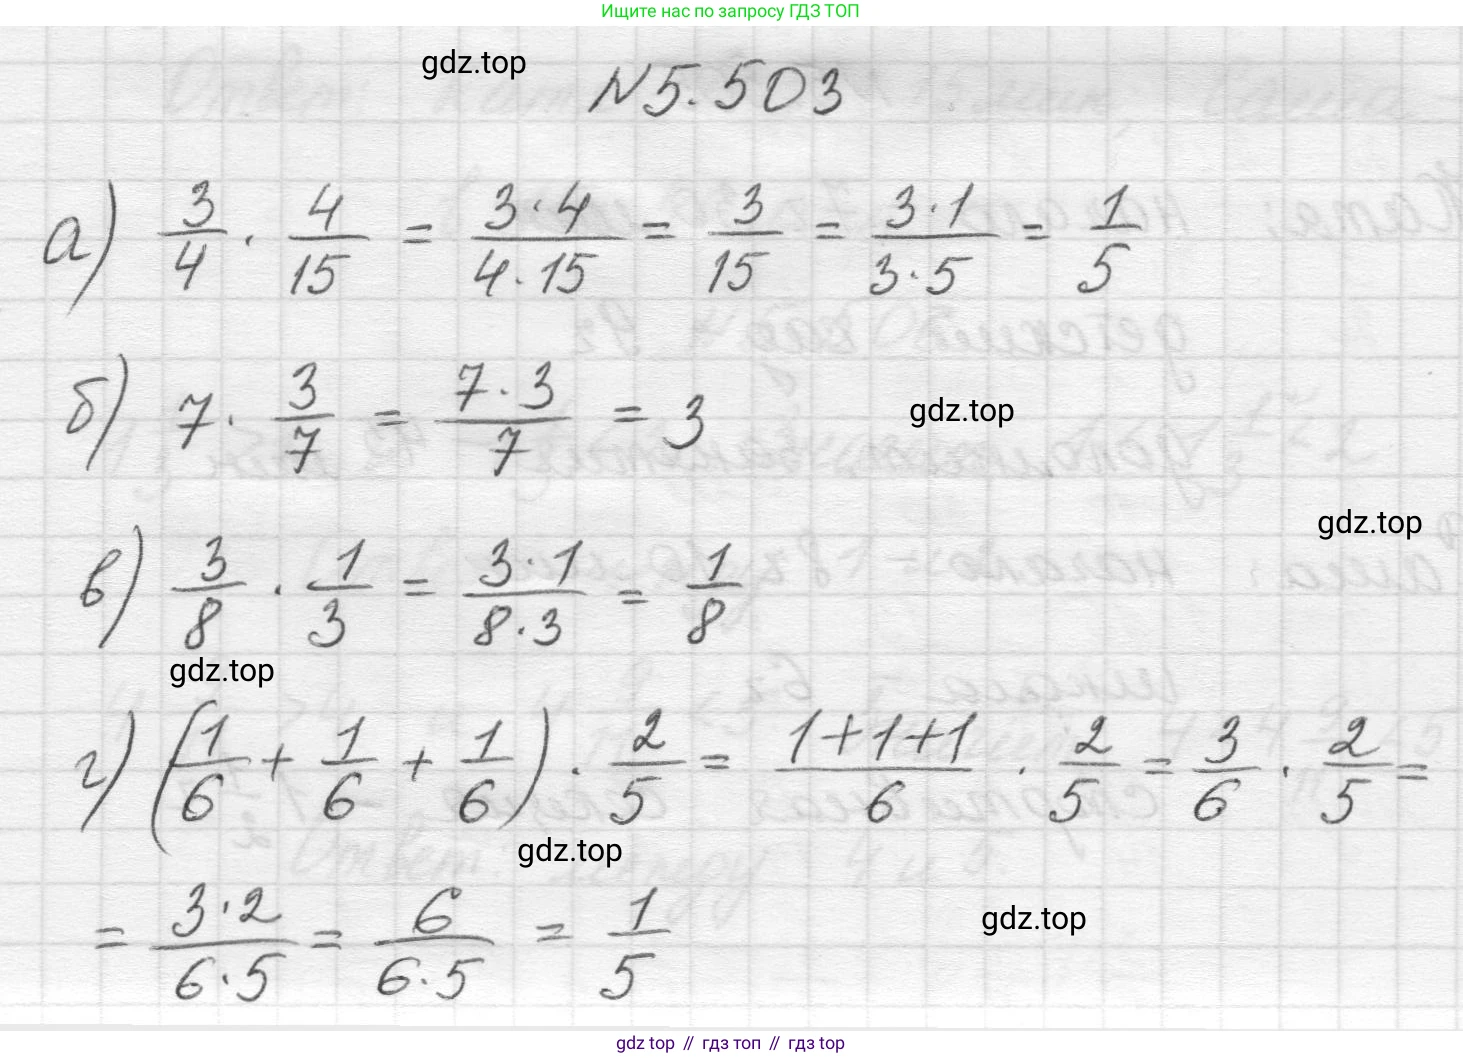 Ищите нас по запросу ГДЗ ТОП
gdz.top
N5.503
а) 3/4 · 4/15 = 3·4/4·15 = 3/15 = 3·1/3·5 = 1/5
б) 7 · 3/7 = 7·3/7 = 3
gdz.top
gdz.top
в) 3/8 · 1/3 = 3·1/8·3 = 1/8
gdz.top
г) (1/6 + 1/6 + 1/6) · 2/5 = 1+1+1/6 · 2/5 = 3/6 · 2/5 =
gdz.top
= 3·2/6·5 = 6/6·5 = 1/5
gdz.top
gdz top // гдз топ // гдз top